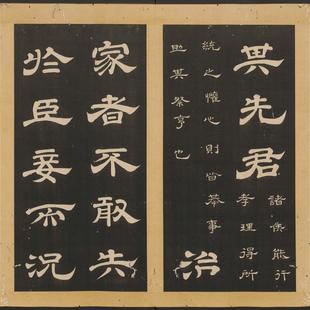 其先君
諸侯能行
孝理得所
統之懽心則皆恭事
助其祭享也
治
家者不敢失
於臣妾而況